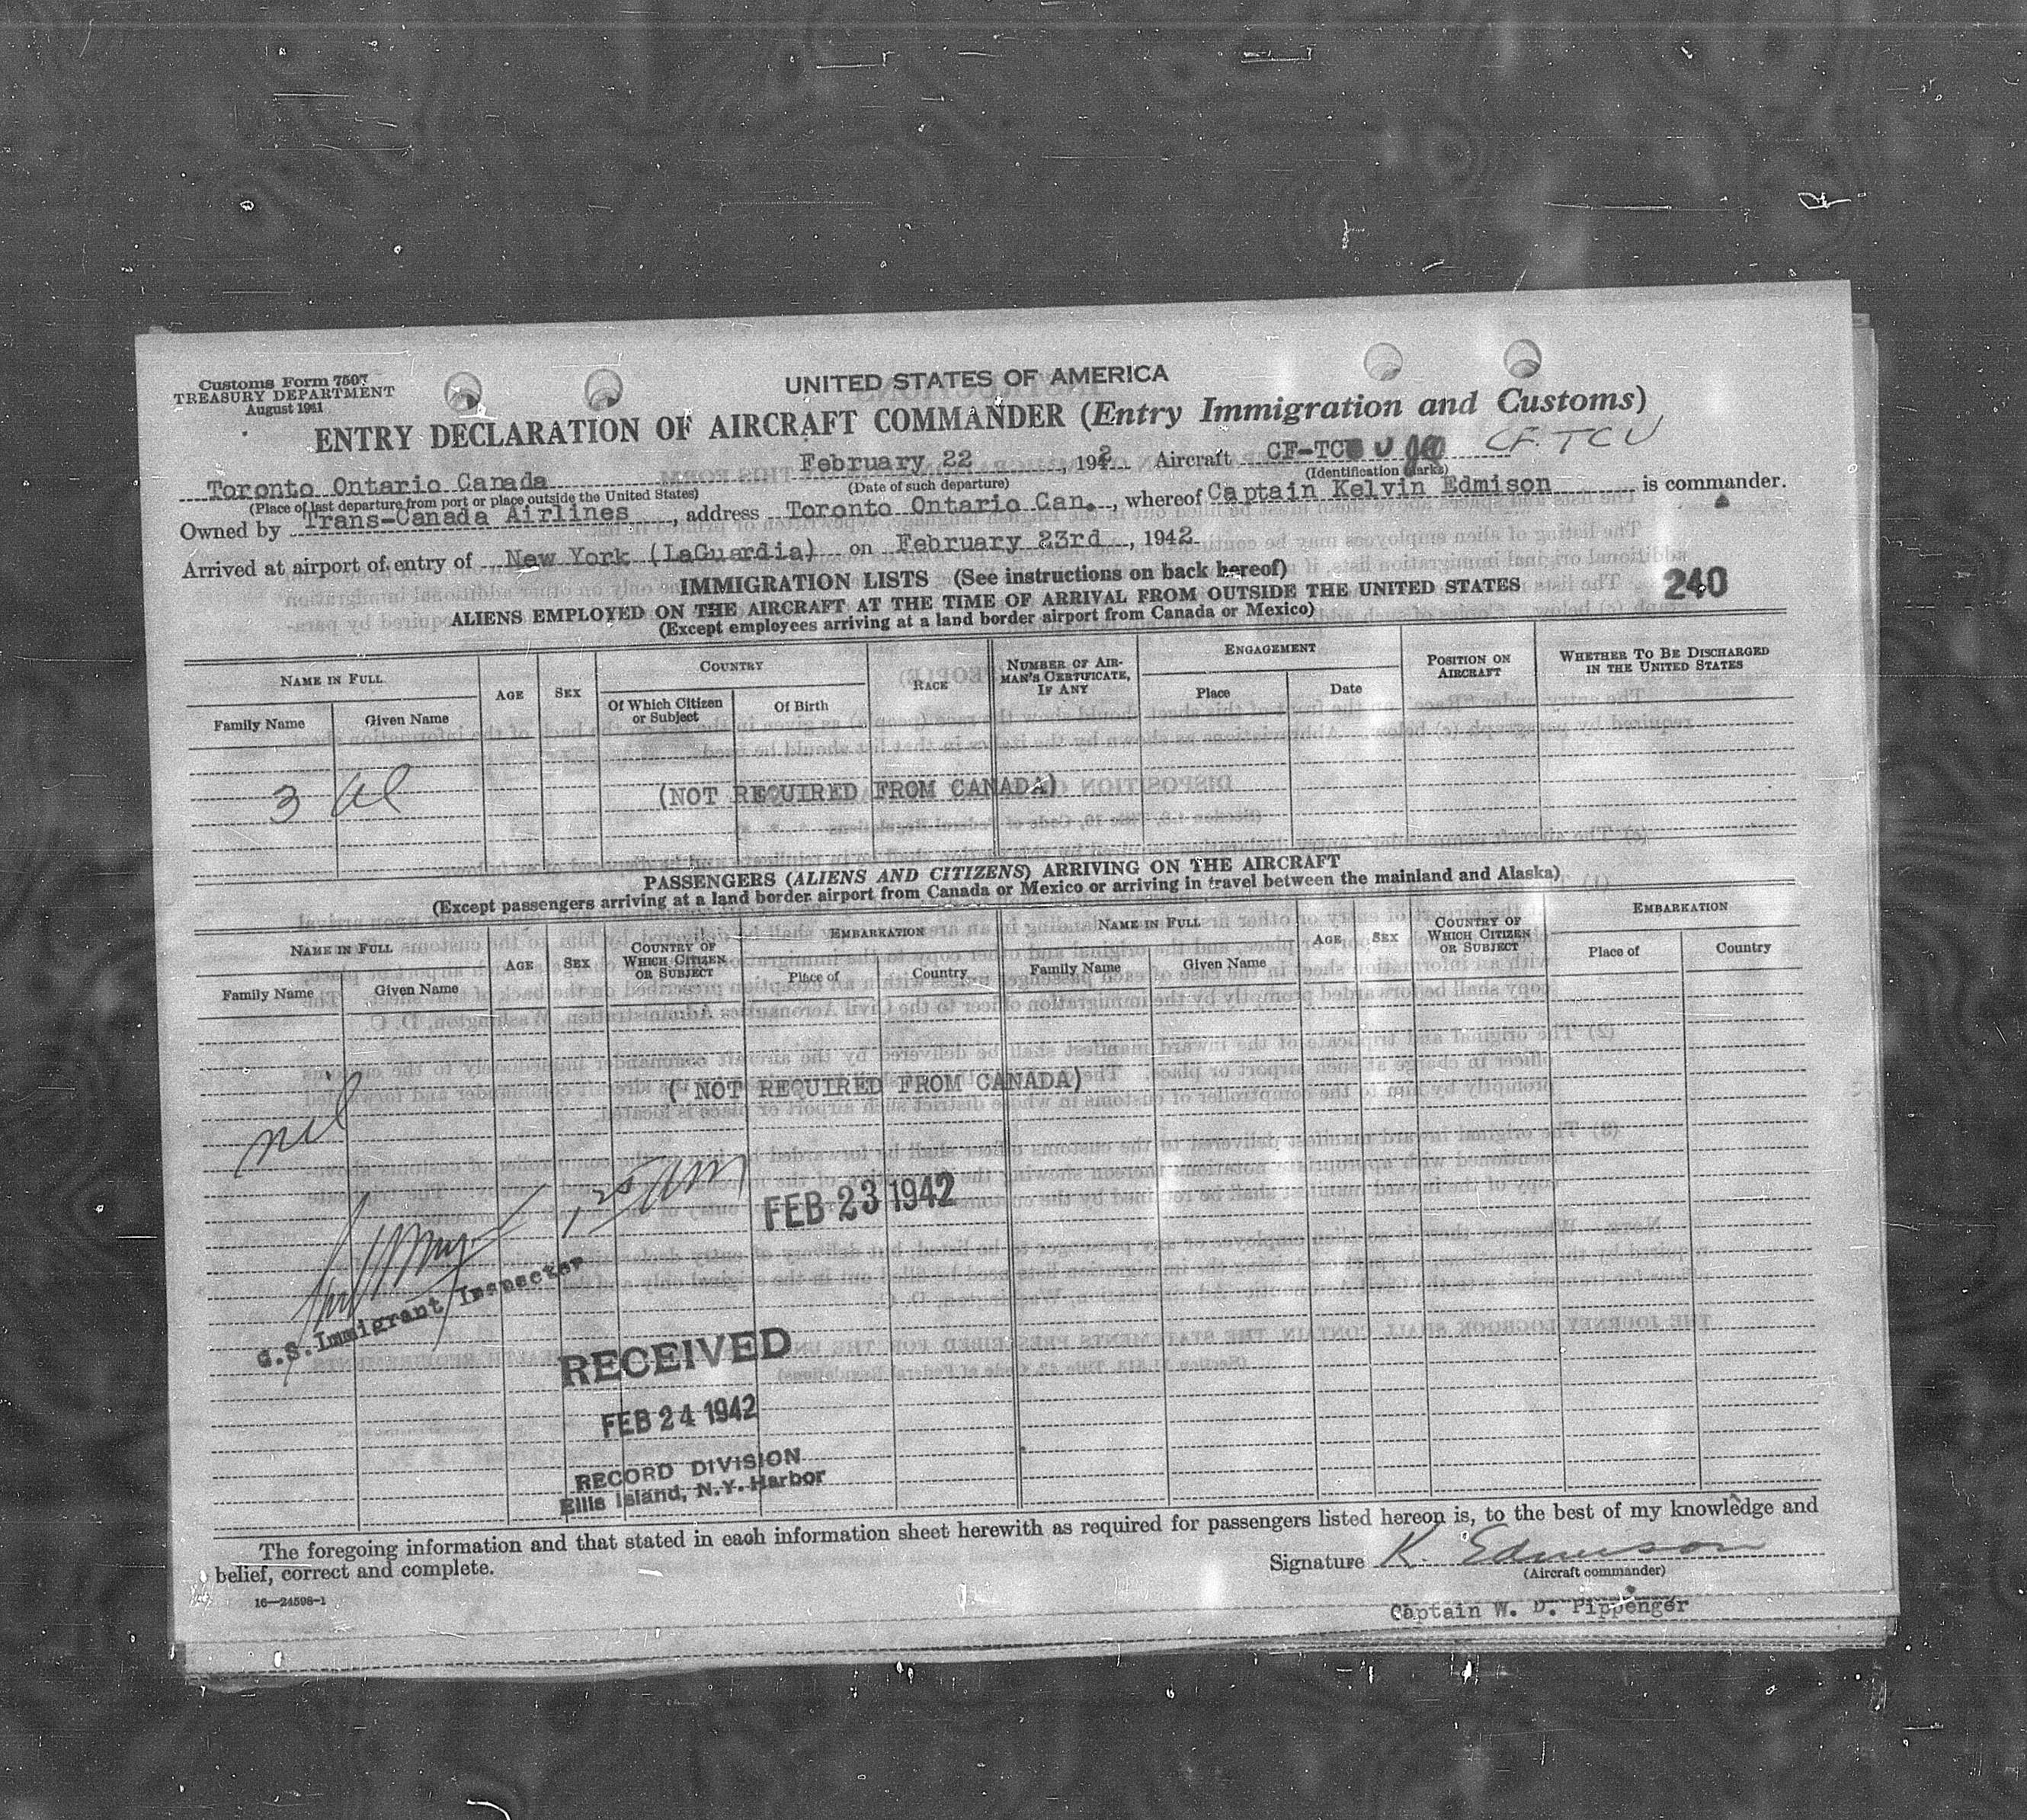 Customs Form 7507
TREASURY DEPARTMENT
August 1941
UNITED STATES OF AMERICA
ENTRY DECLARATION OF AIRCRAFT COMMANDER (Entry Immigration and Customs)
Toronto Ontario Canada February 22, 1942 Aircraft CF-TC U CF. TCU
(Place of last departure from port or place outside the United States) (Date of such departure) (Identification Marks)
Owned by Trans-Canada Airlines, address Toronto Ontario Can., whereof Captain Kelvin Edmison is commander.
Arrived at airport of entry of New York (LaGuardia) on February 23rd, 1942
IMMIGRATION LISTS (See instructions on back hereof)
240
ALIENS EMPLOYED ON THE AIRCRAFT AT THE TIME OF ARRIVAL FROM OUTSIDE THE UNITED STATES
(Except employees arriving at a land border airport from Canada or Mexico)
NAME IN FULL AGE SEX COUNTRY RACE NUMBER OF AIRMAN'S CERTIFICATE, IF ANY ENGAGEMENT POSITION ON AIRCRAFT WHETHER TO BE DISCHARGED IN THE UNITED STATES
Family Name Given Name Of Which Citizen or Subject Of Birth Place Date
3 (NOT REQUIRED FROM CANADA)
PASSENGERS (ALIENS AND CITIZENS) ARRIVING ON THE AIRCRAFT
(Except passengers arriving at a land border airport from Canada or Mexico or arriving in travel between the mainland and Alaska)
NAME IN FULL AGE SEX COUNTRY OF WHICH CITIZEN OR SUBJECT EMBARKATION NAME IN FULL AGE SEX COUNTRY OF WHICH CITIZEN OR SUBJECT EMBARKATION
Family Name Given Name Place of Country Family Name Given Name Place of Country
nil (NOT REQUIRED FROM CANADA)
FEB 23 1942
U.S. Immigrant Inspector
RECEIVED
FEB 24 1942
RECORD DIVISION
Ellis Island, N.Y. Harbor
The foregoing information and that stated in each information sheet herewith as required for passengers listed hereon is, to the best of my knowledge and
belief, correct and complete.
Signature K. Edmison
(Aircraft commander)
16—24598-1
Captain W. D. Pippenger